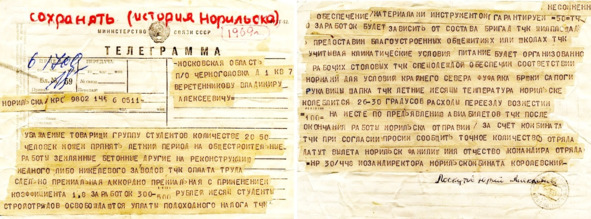 сохранять (история Норильска)
(1969г.
МИНИСТЕРСТВО СВЯЗИ СССР
ТЕЛЕГРАММА
-МОСКОВСКАЯ ОБЛАСТЬ
П/О ЧЕРНОГОЛОВКА Д 1 КВ 7
ВЕРЕТЕННИКОВУ ВЛАДИМИРУ
АЛЕКСЕЕВИЧУ=
НОРИЛЬСКА/КРС 9802 144 6 0511=
УВАЖАЕМЫЕ ТОВАРИЩИ ГРУППУ СТУДЕНТОВ КОЛИЧЕСТВЕ 20 50
ЧЕЛОВЕК МОЖЕМ ПРИНЯТЬ ЛЕТНИЙ ПЕРИОД НА ОБЩЕСТРОИТЕЛЬНЫЕ
РАБОТЫ ЗЕМЛЯНЫЕ БЕТОННЫЕ ДРУГИЕ НА РЕКОНСТРУКЦИИ
МЕДНОГО ЛИБО НИКЕЛЕВОГО ЗАВОДОВ ТЧК ОПЛАТА ТРУДА
СДЕЛЬНО ПРЕМИАЛЬНАЯ АККОРДНО ПРЕМИАЛЬНАЯ С ПРИМЕНЕНИЕМ
КОЭФФИЦИЕНТА 1,8 ЗАРАБОТОК 300-500 РУБЛЕЙ МЕСЯЦ СТУДЕНТЫ
СТРОЙОТРЯДОВ ОСВОБОЖДАЮТСЯ УПЛАТЫ ПОДОХОДНОГО НАЛОГА ТЧК
ОБЕСПЕЧЕНИЕ МАТЕРИАЛАМИ ИНСТРУМЕНТОМ ГАРАНТИРУЕМ =50=ТЧ
О ЗАРАБОТОК БУДЕТ ЗАВИСИТЬ ОТ СОСТАВА БРИГАД ТЧК ЖИЛПЛОЩАДЬ
ПРЕДОСТАВИМ БЛАГОУСТРОЕННЫХ ОБЩЕЖИТИЯХ ИЛИ ШКОЛАХ ТЧК
УЧИТЫВАЯ КЛИМАТИЧЕСКИЕ УСЛОВИЯ ПИТАНИЕ БУДЕТ ОРГАНИЗОВАНО
РАБОЧИХ СТОЛОВЫХ ТЧК СПЕЦОДЕЖДОЙ ОБЕСПЕЧИМ СООТВЕТСТВИИ
НОРМАМИ ДЛЯ УСЛОВИЙ КРАЙНЕГО СЕВЕРА ФУФАЙКА БРЮКИ САПОГИ
РУКАВИЦЫ ШАПКА ТЧК ЛЕТНИЕ МЕСЯЦЫ ТЕМПЕРАТУРА НОРИЛЬСКЕ
КОЛЕБЛЕТСЯ 20-30 ГРАДУСОВ РАСХОДЫ ПЕРЕЕЗДУ ВОЗМЕСТИМ
=100= НА МЕСТЕ ПО ПРЕДЪЯВЛЕНИЮ АВИАБИЛЕТОВ ТЧК ПОСЛЕ
ОКОНЧАНИЯ РАБОТЫ НОРИЛЬСК ОТПРАВИМ ЗА СЧЕТ КОМБИНАТА
ТЧК ПРИ СОГЛАСИИ ПРОСИМ СООБЩИТЬ ТОЧНОЕ КОЛИЧЕСТВО ОТРЯДА
ДАТУ ВЫЛЕТА НОРИЛЬСК ФАМИЛИЮ ИМЯ ОТЧЕСТВО КОМАНДИРА ОТРЯДА
=НР 30/44Ю ИОЗАМДИРЕКТОРА НОРИЛЬСКОМБИНАТА КОРОЛЕВСКИЙ-